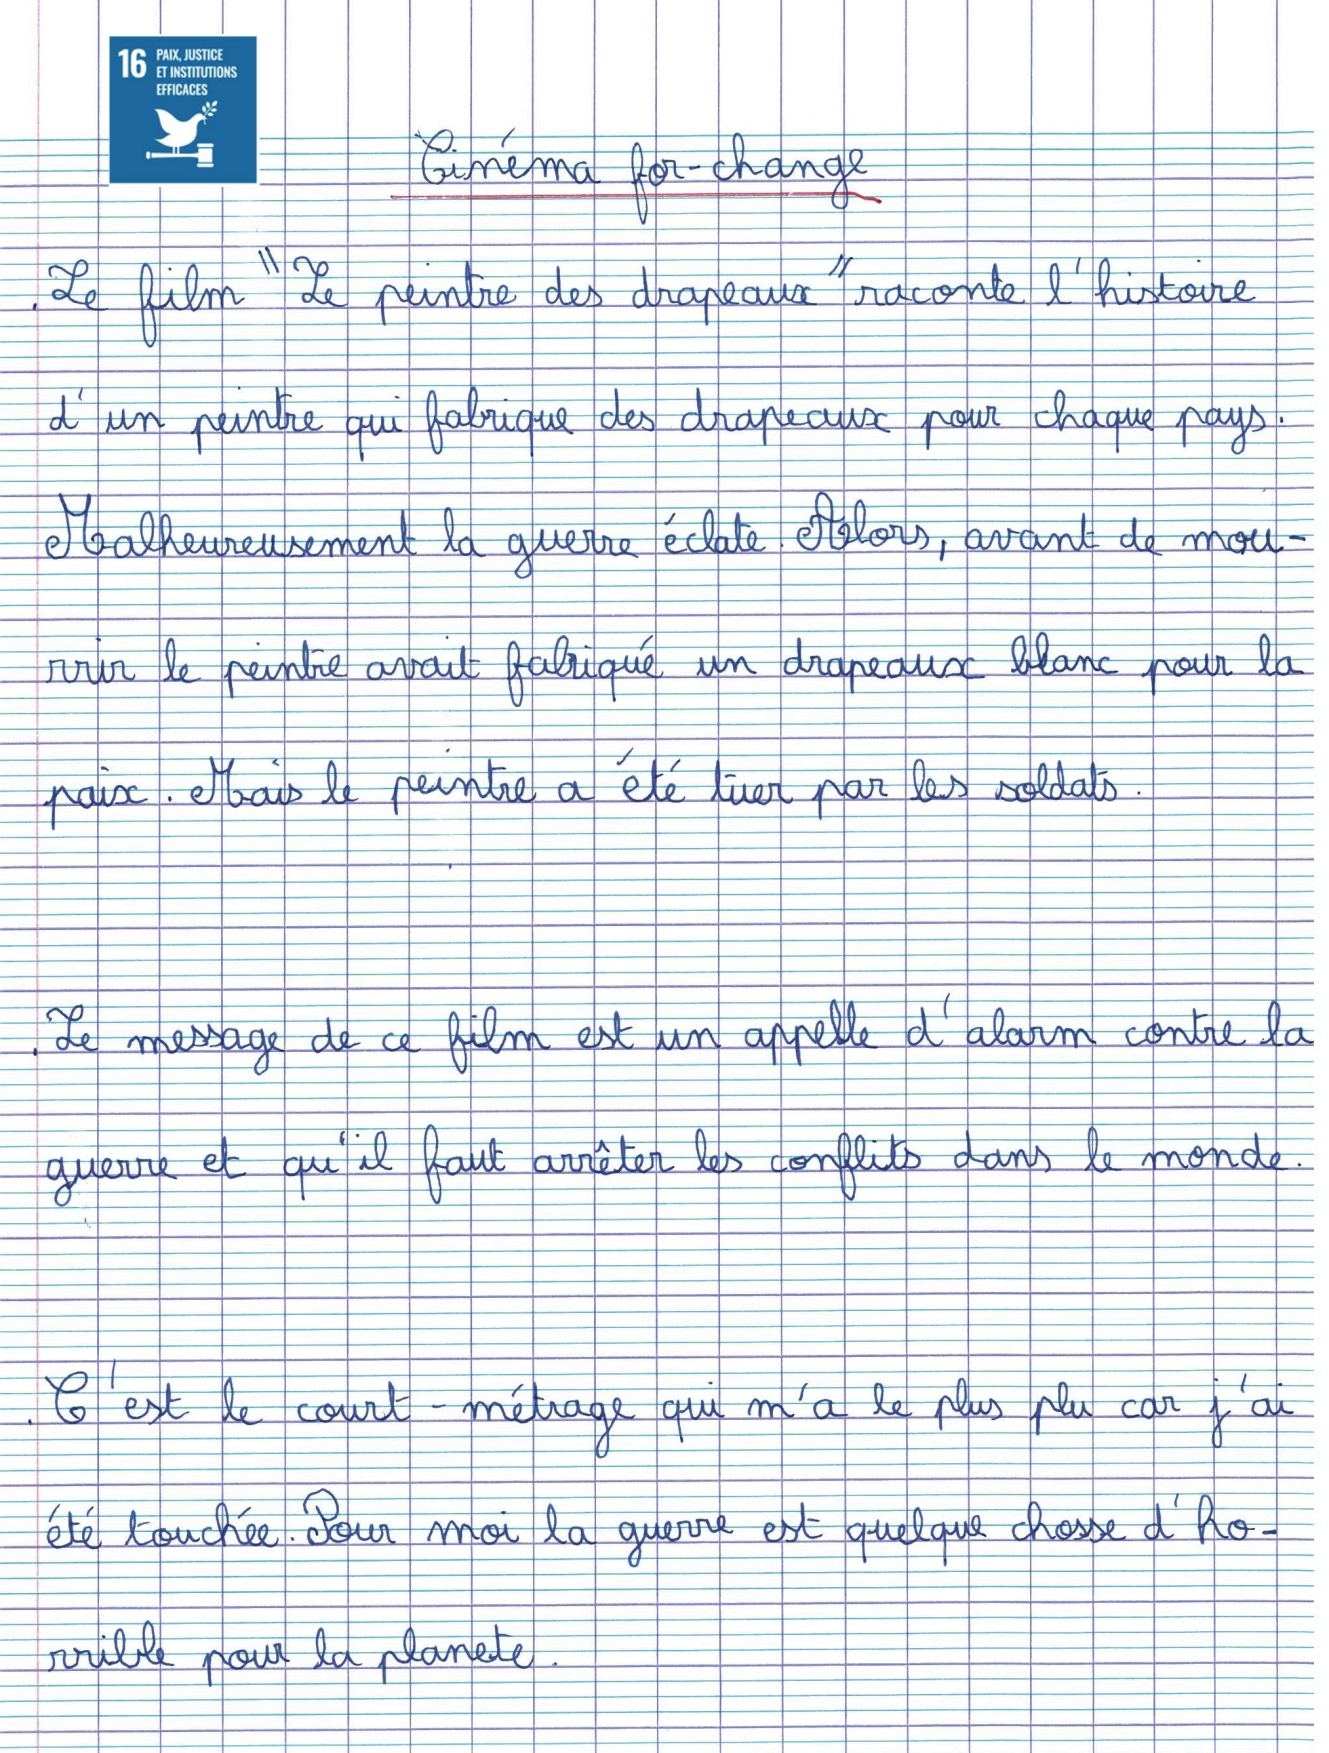 16 PAIX, JUSTICE
ET INSTITUTIONS
EFFICACES
Cinéma for-change
. Le film "Le peintre des drapeaux" raconte l'histoire
d'un peintre qui fabrique des drapeaux pour chaque pays.
Malheureusement la guerre éclate. Alors, avant de mou-
rrir le peintre avait fabriqué un drapeaux blanc pour la
paix. Mais le peintre a été tuer par les soldats.
. Le message de ce film est un appelle d'alarm contre la
guerre et qu'il faut arrêter les conflits dans le monde.
. C'est le court-métrage qui m'a le plus plu car j'ai
été touchée. Pour moi la guerre est quelque chosse d'ho-
rrible pour la planete.